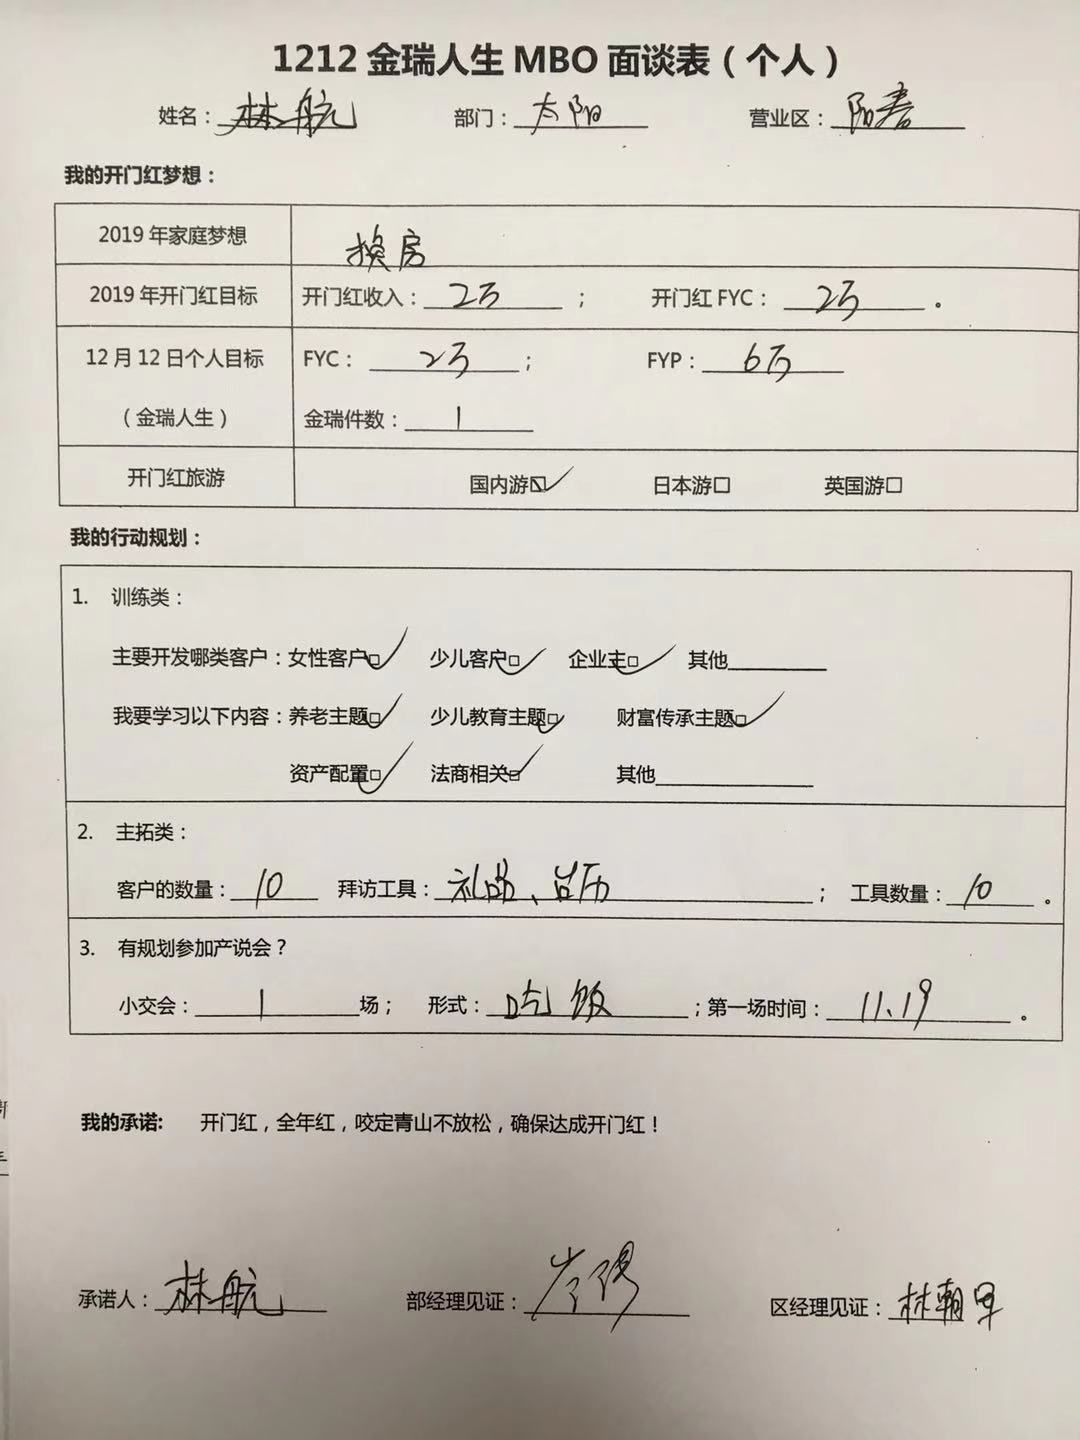 1212金瑞人生MBO面谈表（个人）
姓名：林航 部门：太阳 营业区：阳春
我的开门红梦想：
2019年家庭梦想 换房
2019年开门红目标 开门红收入：2万； 开门红FYC：2万。
12月12日个人目标 FYC：2万； FYP：6万
（金瑞人生） 金瑞件数：1
开门红旅游 国内游☑ 日本游□ 英国游□
我的行动规划：
1. 训练类：
主要开发哪类客户：女性客户☑ 少儿客户☑ 企业主☑ 其他
我要学习以下内容：养老主题☑ 少儿教育主题☑ 财富传承主题☑
资产配置☑ 法商相关☑ 其他
2. 主拓类：
客户的数量：10 拜访工具：礼品、台历； 工具数量：10。
3. 有规划参加产说会？
小交会：1场； 形式：吃饭；第一场时间：11.19。
我的承诺: 开门红，全年红，咬定青山不放松，确保达成开门红！
承诺人：林航 部经理见证： 区经理见证：林朝